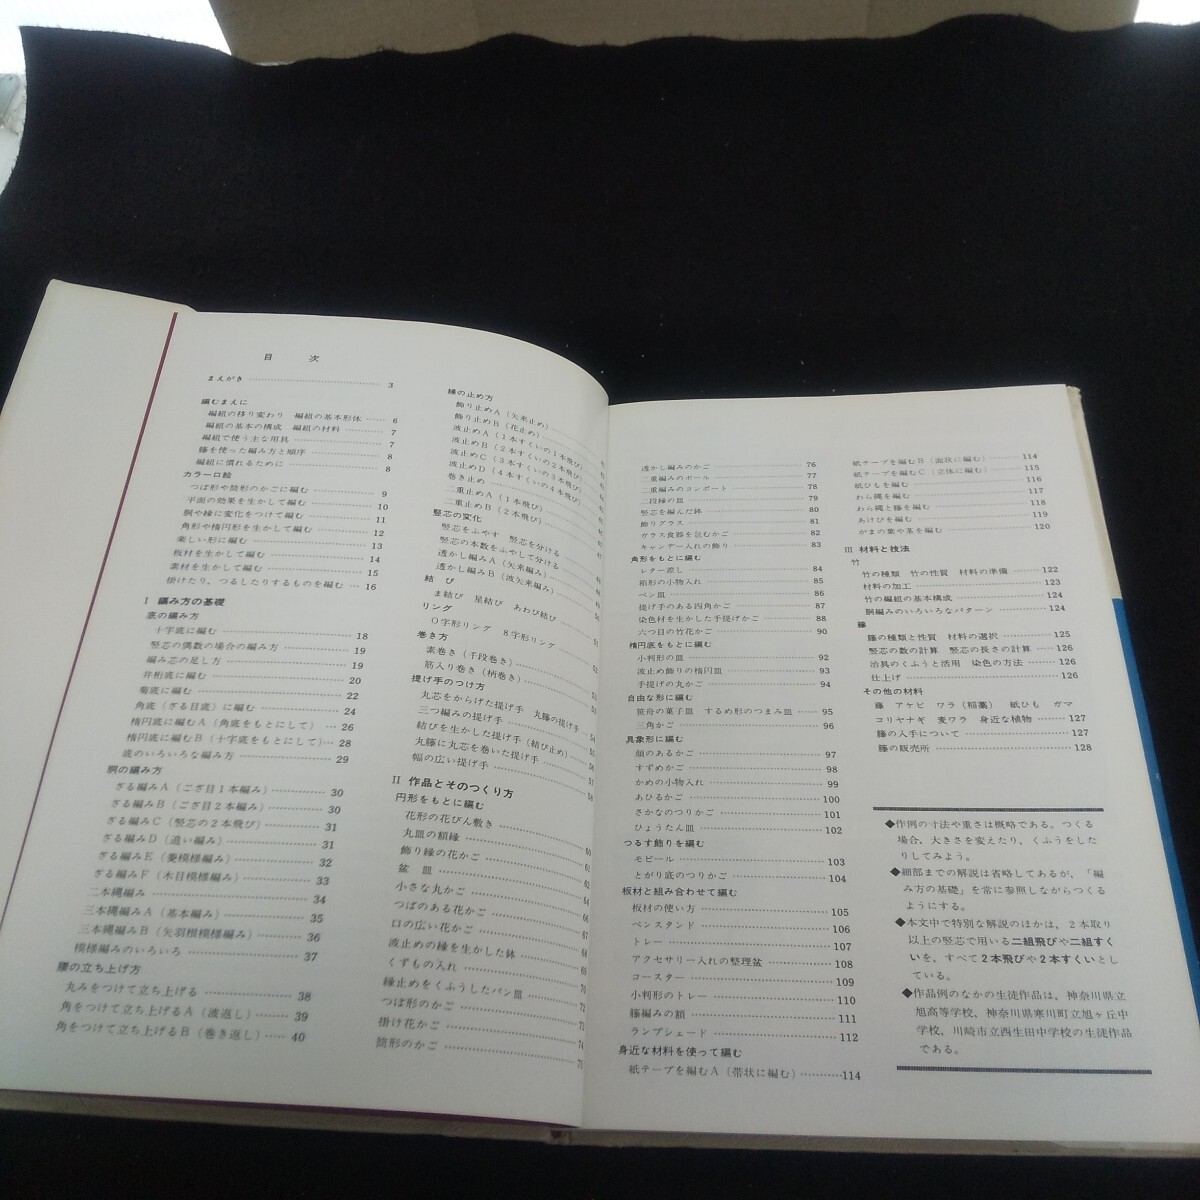 目次
まえがき 3
編むまえに
編組の移り変わり 編組の基本形体 6
編組の基本の構成 編組の材料 7
編組で使う主な用具 7
籐を使った編み方と順序 8
編組に慣れるために 8
カラー口絵
つぼ形や筒形のかごに編む 9
平面の効果を生かして編む 10
胴や縁に変化をつけて編む 11
角形や楕円形を生かして編む 12
楽しい形に編む 13
板材を生かして編む 14
素材を生かして編む 15
掛けたり,つるしたりするものを編む 16
I 編み方の基礎
底の編み方
十字底に編む 18
竪芯の偶数の場合の編み方 19
編み芯の足し方 19
井桁底に編む 20
菊底に編む 22
角底(ざる目底)に編む 24
楕円底に編むA(角底をもとにして) 26
楕円底に編むB(十字底をもとにして) 28
底のいろいろな編み方 29
胴の編み方
ざる編みA(ござ目1本編み) 30
ざる編みB(ござ目2本編み) 30
ざる編みC(竪芯の2本飛び) 31
ざる編みD(追い編み) 31
ざる編みE(菱模様編み) 32
ざる編みF(木目模様編み) 33
二本縄編み 34
三本縄編みA(基本編み) 35
三本縄編みB(矢羽根模様編み) 36
模様編みのいろいろ 37
腰の立ち上げ方
丸みをつけて立ち上げる 38
角をつけて立ち上げるA(波返し) 39
角をつけて立ち上げるB(巻き返し) 40
縁の止め方
飾り止めA(矢来止め)
飾り止めB(花止め)
波止めA(1本すくいの1本飛び)
波止めB(2本すくいの2本飛び)
波止めC(3本すくいの3本飛び)
波止めD(4本すくいの4本飛び)
巻き止め
二重止めA(1本飛び)
二重止めB(2本飛び)
竪芯の変化
竪芯をふやす 竪芯を分ける
竪芯の本数をふやして分ける
透かし編みA(矢来編み)
透かし編みB(波矢来編み)
結び
ま結び 星結び あわび結び 51
リング
O字形リング 8字形リング 52
巻き方
素巻き(千段巻き)
筋入り巻き(柄巻き)
提げ手のつけ方
丸芯をからげた提げ手 丸籐の提げ手 54
三つ編みの提げ手
結びを生かした提げ手(結び止め)
丸籐に丸芯を巻いた提げ手
幅の広い提げ手 58
II 作品とそのつくり方
円形をもとに編む
花形の花びん敷き 60
丸皿の額縁 61
飾り縁の花かご 62
盆 皿 64
小さな丸かご 66
つばのある花かご 67
口の広い花かご 68
波止めの縁を生かした鉢 69
くずもの入れ 70
縁止めをくふうしたパン皿 72
つぼ形のかご 73
掛け花かご 74
筒形のかご 75
透かし編みのかご 76
二重編みのボール 77
二重編みのコンポート 78
二段縁の皿 79
竪芯を編んだ鉢 80
飾りグラス 81
ガラス食器を包むかご 82
キャンデー入れの飾り 83
角形をもとに編む
レター差し 84
箱形の小物入れ 85
ペン皿 86
提げ手のある四角かご 87
染色材を生かした手提げかご 88
六つ目の竹花かご 90
楕円底をもとに編む
小判形の皿 92
波止め飾りの楕円皿 93
手提げの丸かご 94
自由な形に編む
笹舟の菓子皿 するめ形のつまみ皿 95
三角かご 96
具象形に編む
顔のあるかご 97
すずめかご 98
かめの小物入れ 99
あひるかご 100
さかなのつりかご 101
ひょうたん皿 102
つるす飾りを編む
モビール 103
とがり底のつりかご 104
板材と組み合わせて編む
板材の使い方 105
ペンスタンド 106
トレー 107
アクセサリー入れの整理盆 108
コースター 109
小判形のトレー 110
籐編みの額 111
ランプシェード 112
身近な材料を使って編む
紙テープを編むA(帯状に編む) 114
紙テープを編むB(面状に編む) 114
紙テープを編むC(立体に編む) 115
紙ひもを編む 116
わら縄を編む 117
わら縄と籐を編む 118
あけびを編む 119
がまの葉や茎を編む 120
III 材料と技法
竹
竹の種類 竹の性質 材料の準備 122
材料の加工 123
竹の編組の基本構成 124
胴編みのいろいろなパターン 124
籐
籐の種類と性質 材料の選択 125
竪芯の数の計算 竪芯の長さの計算 126
治具のくふうと活用 染色の方法 126
仕上げ 126
その他の材料
籐 アケビ ワラ(稲藁) 紙ひも ガマ
コリヤナギ 麦ワラ 身近な植物 127
籐の入手について 127
籐の販売所 128
◆作例の寸法や重さは概略である。つくる
場合,大きさを変えたり,くふうをした
りしてみよう。
◆細部までの解説は省略してあるが,「編
み方の基礎」を常に参照しながらつくる
ようにする。
◆本文中で特別な解説のほかは,2本取り
以上の竪芯で用いる二組飛びや二組すく
いを,すべて2本飛びや2本すくいとし
ている。
◆作品例のなかの生徒作品は,神奈川県立
旭高等学校,神奈川県寒川町立旭ヶ丘中
学校,川崎市立西生田中学校の生徒作品
である。